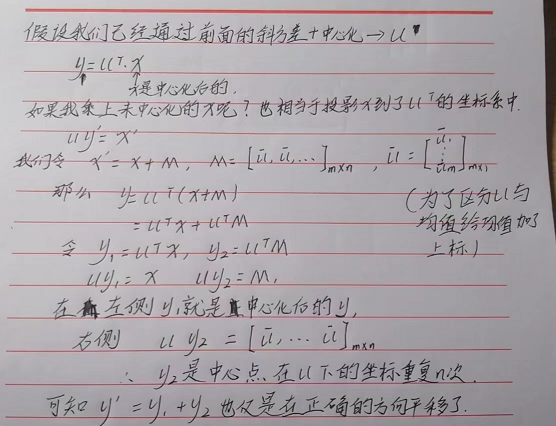 假设我们已经通过前面的斜方差+中心化→u
y=uᵀ·x
x是中心化后的.
如果我乘上未中心化的x呢?也相当于投影x到了uᵀ的坐标系中.
uy'=x'
我们令 x'=x+M, M=[ū, ū, ...]m×n , ū=[ū₁ ⋮ ūm]m×1
那么 y=uᵀ(x+M)
=uᵀx+uᵀM
(为了区分u与均值给均值加了上标)
令 y₁=uᵀx, y₂=uᵀM
uy₁=x uy₂=M,
在左侧y₁就是中心化后的y,
右侧 u y₂=[ū, ... ū]m×n
∴ y₂是中心点在u下的坐标重复n次.
可知 y'=y₁+y₂ 也仅是在正确的方向平移了.